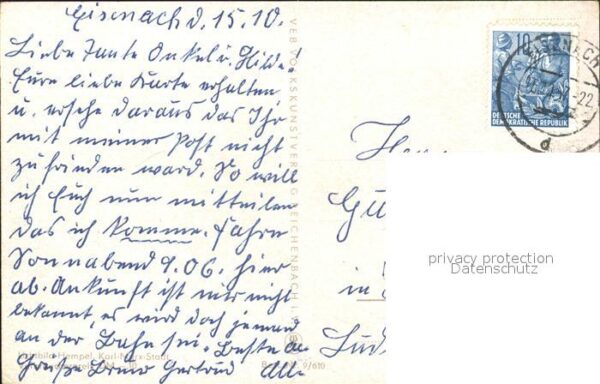 Eisenach d. 15.10.
Liebe Tante Onkel u. Hilde!
Eure liebe Karte erhalten
u. ersehe daraus das Ihr
mit meiner Post nicht
zufrieden ward. So will
ich Euch nun mitteilen
das ich komme. Fahre
Sonnabend 9.06. hier
ab. Ankunft ist mir nicht
bekannt, es wird doch jemand
an der Bahn sei. Beste
Grüße Gertrud
VEB VOLKSKUNSTVERLAG REICHENBACH I.
Hempel, Karl-Marx-Stadt
9/610
10
DEUTSCHE
DEMOKRATISCHE REPUBLIK
EISENACH
d
in
privacy protection
Datenschutz